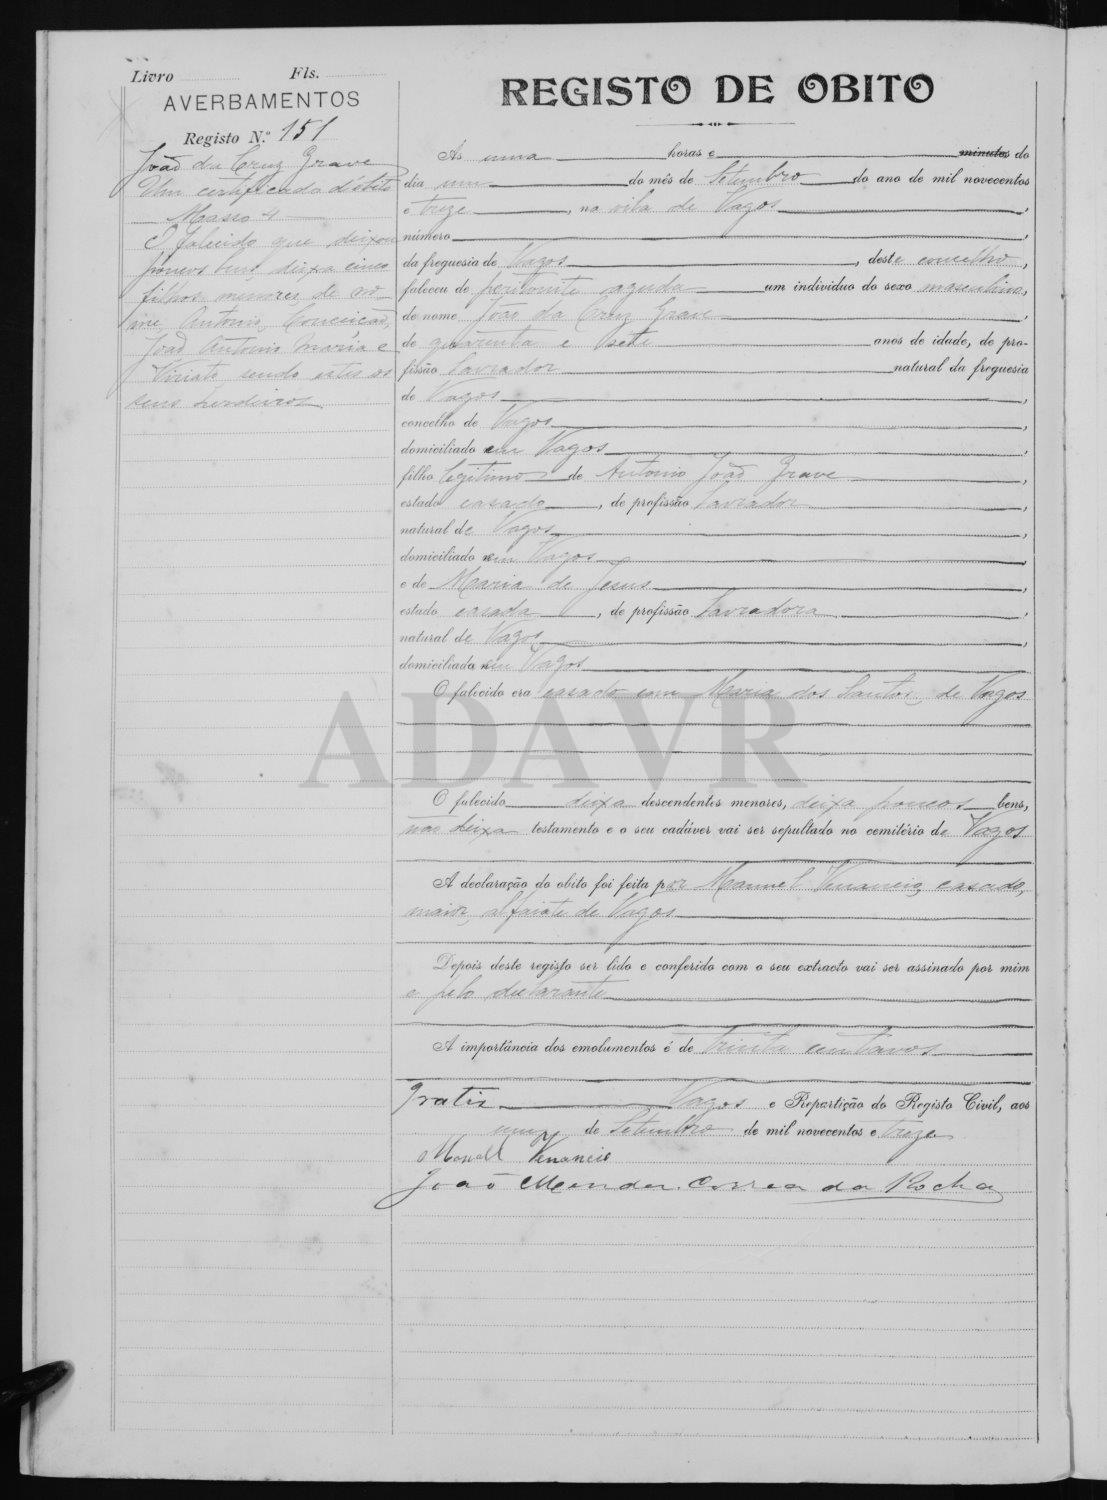 Livro Fls.
AVERBAMENTOS
Registo N.º 151
João da Cruz Grave
Um certificado d'obito
Masso 4
O falecido que deixou
poucos bens deixa cinco
filhos menores de no-
me, Antonio, Conceicão,
João Antonio Maria e
Viriato, sendo estes os
seus herdeiros
REGISTO DE OBITO
Às uma horas e minutos do
dia um do mês de Setembro do ano de mil novecentos
e treze, na vila de Vagos,
número,
da freguesia de Vagos, deste concelho,
faleceu de peritonite aguda um individuo do sexo masculino,
de nome João da Cruz Grave,
de quarenta e sete anos de idade, de pro-
fissão lavrador natural da freguesia
de Vagos,
concelho de Vagos,
domiciliado em Vagos,
filho legitimo de Antonio João Grave,
estado casado, de profissão lavrador,
natural de Vagos,
domiciliado em Vagos,
e de Maria de Jesus,
estado casada, de profissão lavradora,
natural de Vagos,
domiciliada em Vagos
O falecido era casado com Maria dos Santos, de Vagos
ADAVR
O falecido deixa descendentes menores, deixa poucos bens,
não deixa testamento e o seu cadáver vai ser sepultado no cemitério de Vagos
A declaração do obito foi feita por Manuel Venancio, casado,
maior, alfaiate de Vagos
Depois deste registo ser lido e conferido com o seu extracto vai ser assinado por mim
e pelo declarante
A importância dos emolumentos é de trinta centavos
Gratis Vagos e Repartição do Registo Civil, aos
um de Setembro de mil novecentos e treze
Manoel Venancio
João Mendes Correa da Rocha